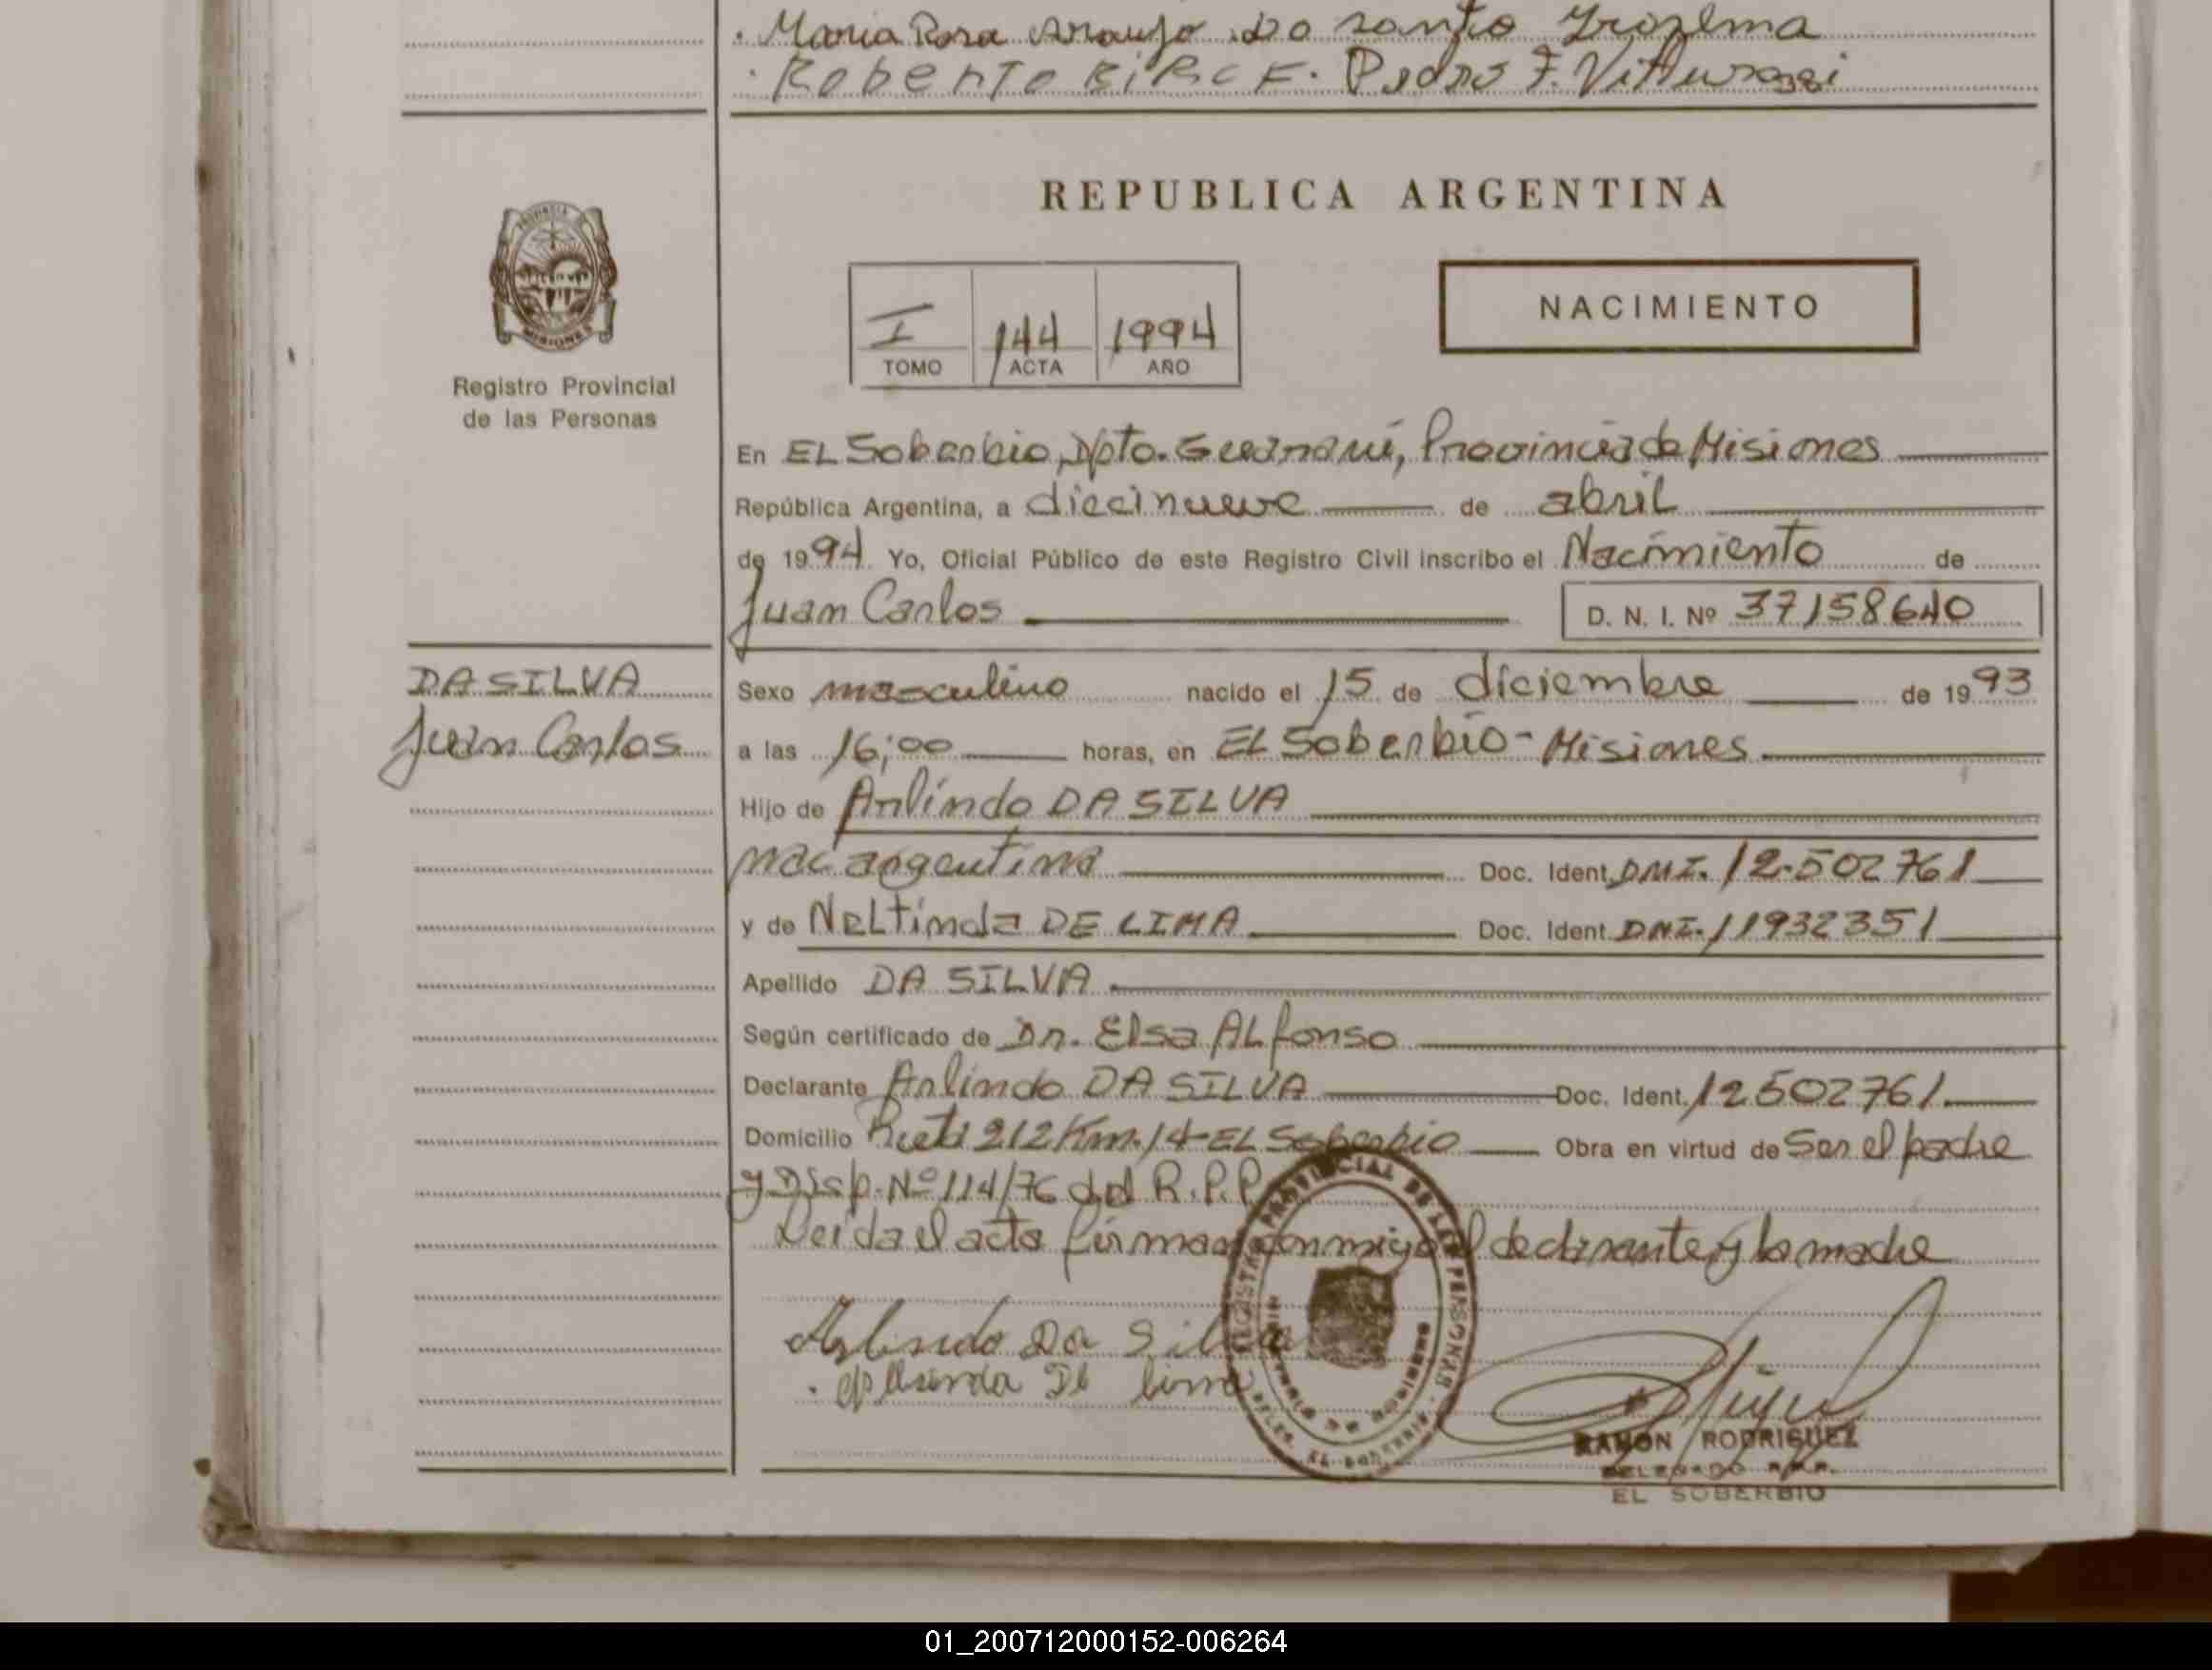 . Maria Rosa Araujo Do Santo
. Roberto Pedro F.
REPUBLICA ARGENTINA
PROVINCIA DE MISIONES
Registro Provincial
de las Personas
I 144 1994
TOMO ACTA AÑO
NACIMIENTO
En EL Soberbio, Dpto. Guaraní, Provincia de Misiones
República Argentina, a diecinueve de abril
de 1994 Yo, Oficial Público de este Registro Civil inscribo el Nacimiento de
Juan Carlos D. N. I. Nº 37158640
DA SILVA
Juan Carlos
Sexo masculino nacido el 15 de diciembre de 1993
a las 16;00 horas, en EL Soberbio - Misiones
Hijo de Arlindo DA SILVA
nac. argentina Doc. Ident. DNI. 12.502761
y de Neltinda DE LIMA Doc. Ident. DNI. 11932351
Apellido DA SILVA
Según certificado de Dr. Elsa ALfonso
Declarante Arlindo DA SILVA Doc. Ident. 12502761
Domicilio Ruta 212 Km. 14 - EL Soberbio Obra en virtud de Ser el padre
y Disp. Nº 114/76 del R.P.P.
Leida el acta firman conmigo el declarante y la madre
REGISTRO PROVINCIAL DE LAS PERSONAS
PROVINCIA DE MISIONES
DELEG. EL SOBERBIO
Arlindo Da Silva
De lima
RAMON RODRIGUEZ
DELEGADO R.P.P.
EL SOBERBIO
01_200712000152-006264